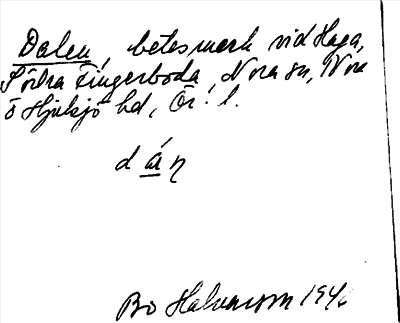 Dalen, betesmark vid Haga,
Södra Fingerboda, Nora sn, Nora
o Hjulsjö hd, Ör. l.
dá̲n
Bo Halvarson 194